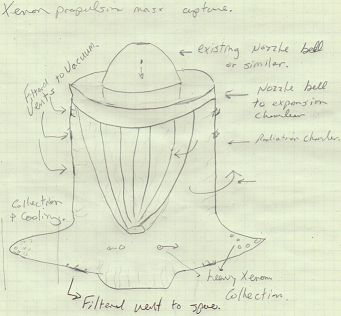 Xenon propulsion mass capture.
existing Nozzle bell
or similar.
Filtered
Vents
to Vacuum.
Nozzle bell
to expansion
chamber
Radiation chamber.
Collection
+ Cooling.
heavy Xenon
Collection.
Filtered vent to space.